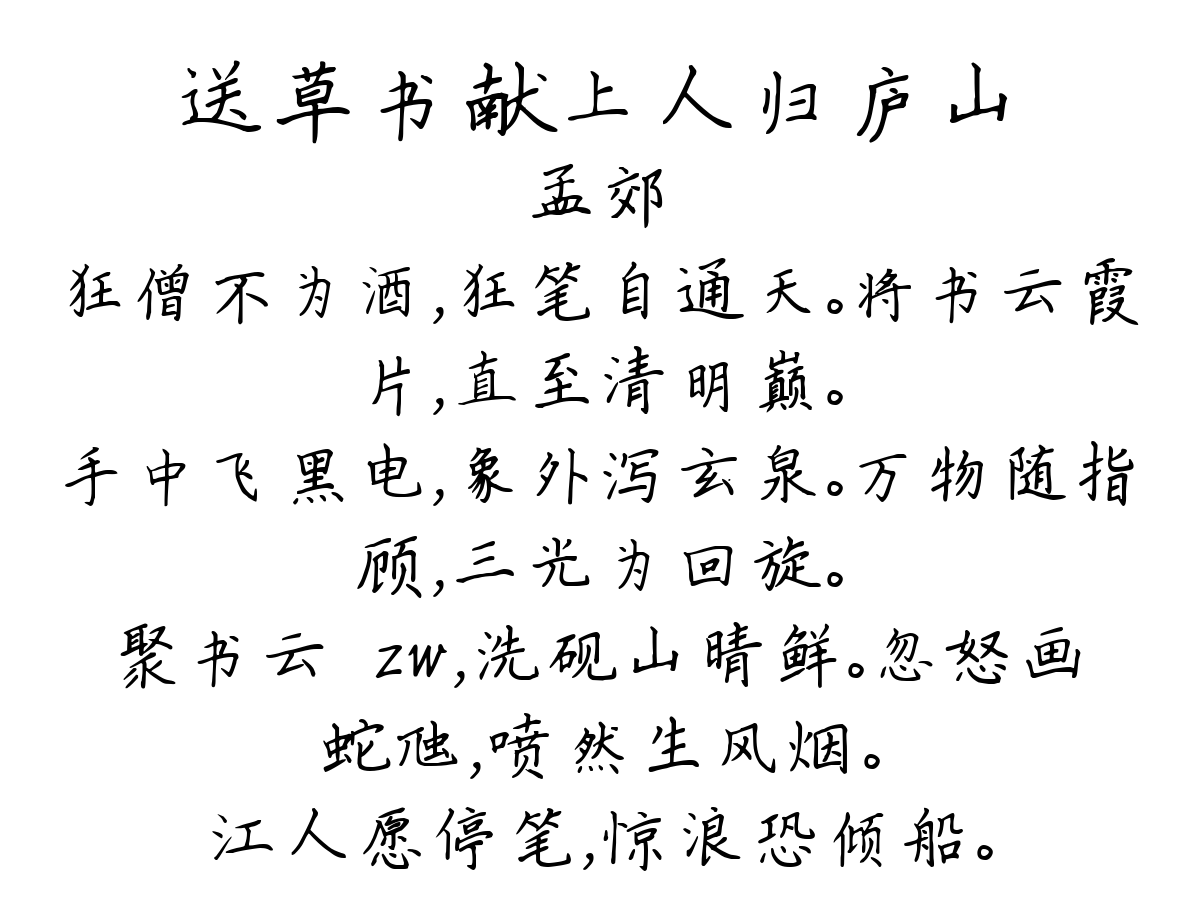 送草书献上人归庐山
孟郊
狂僧不为酒,狂笔自通天。将书云霞
片,直至清明巅。
手中飞黑电,象外泻玄泉。万物随指
顾,三光为回旋。
聚书云 zw,洗砚山晴鲜。忽怒画
蛇虺,喷然生风烟。
江人愿停笔,惊浪恐倾船。